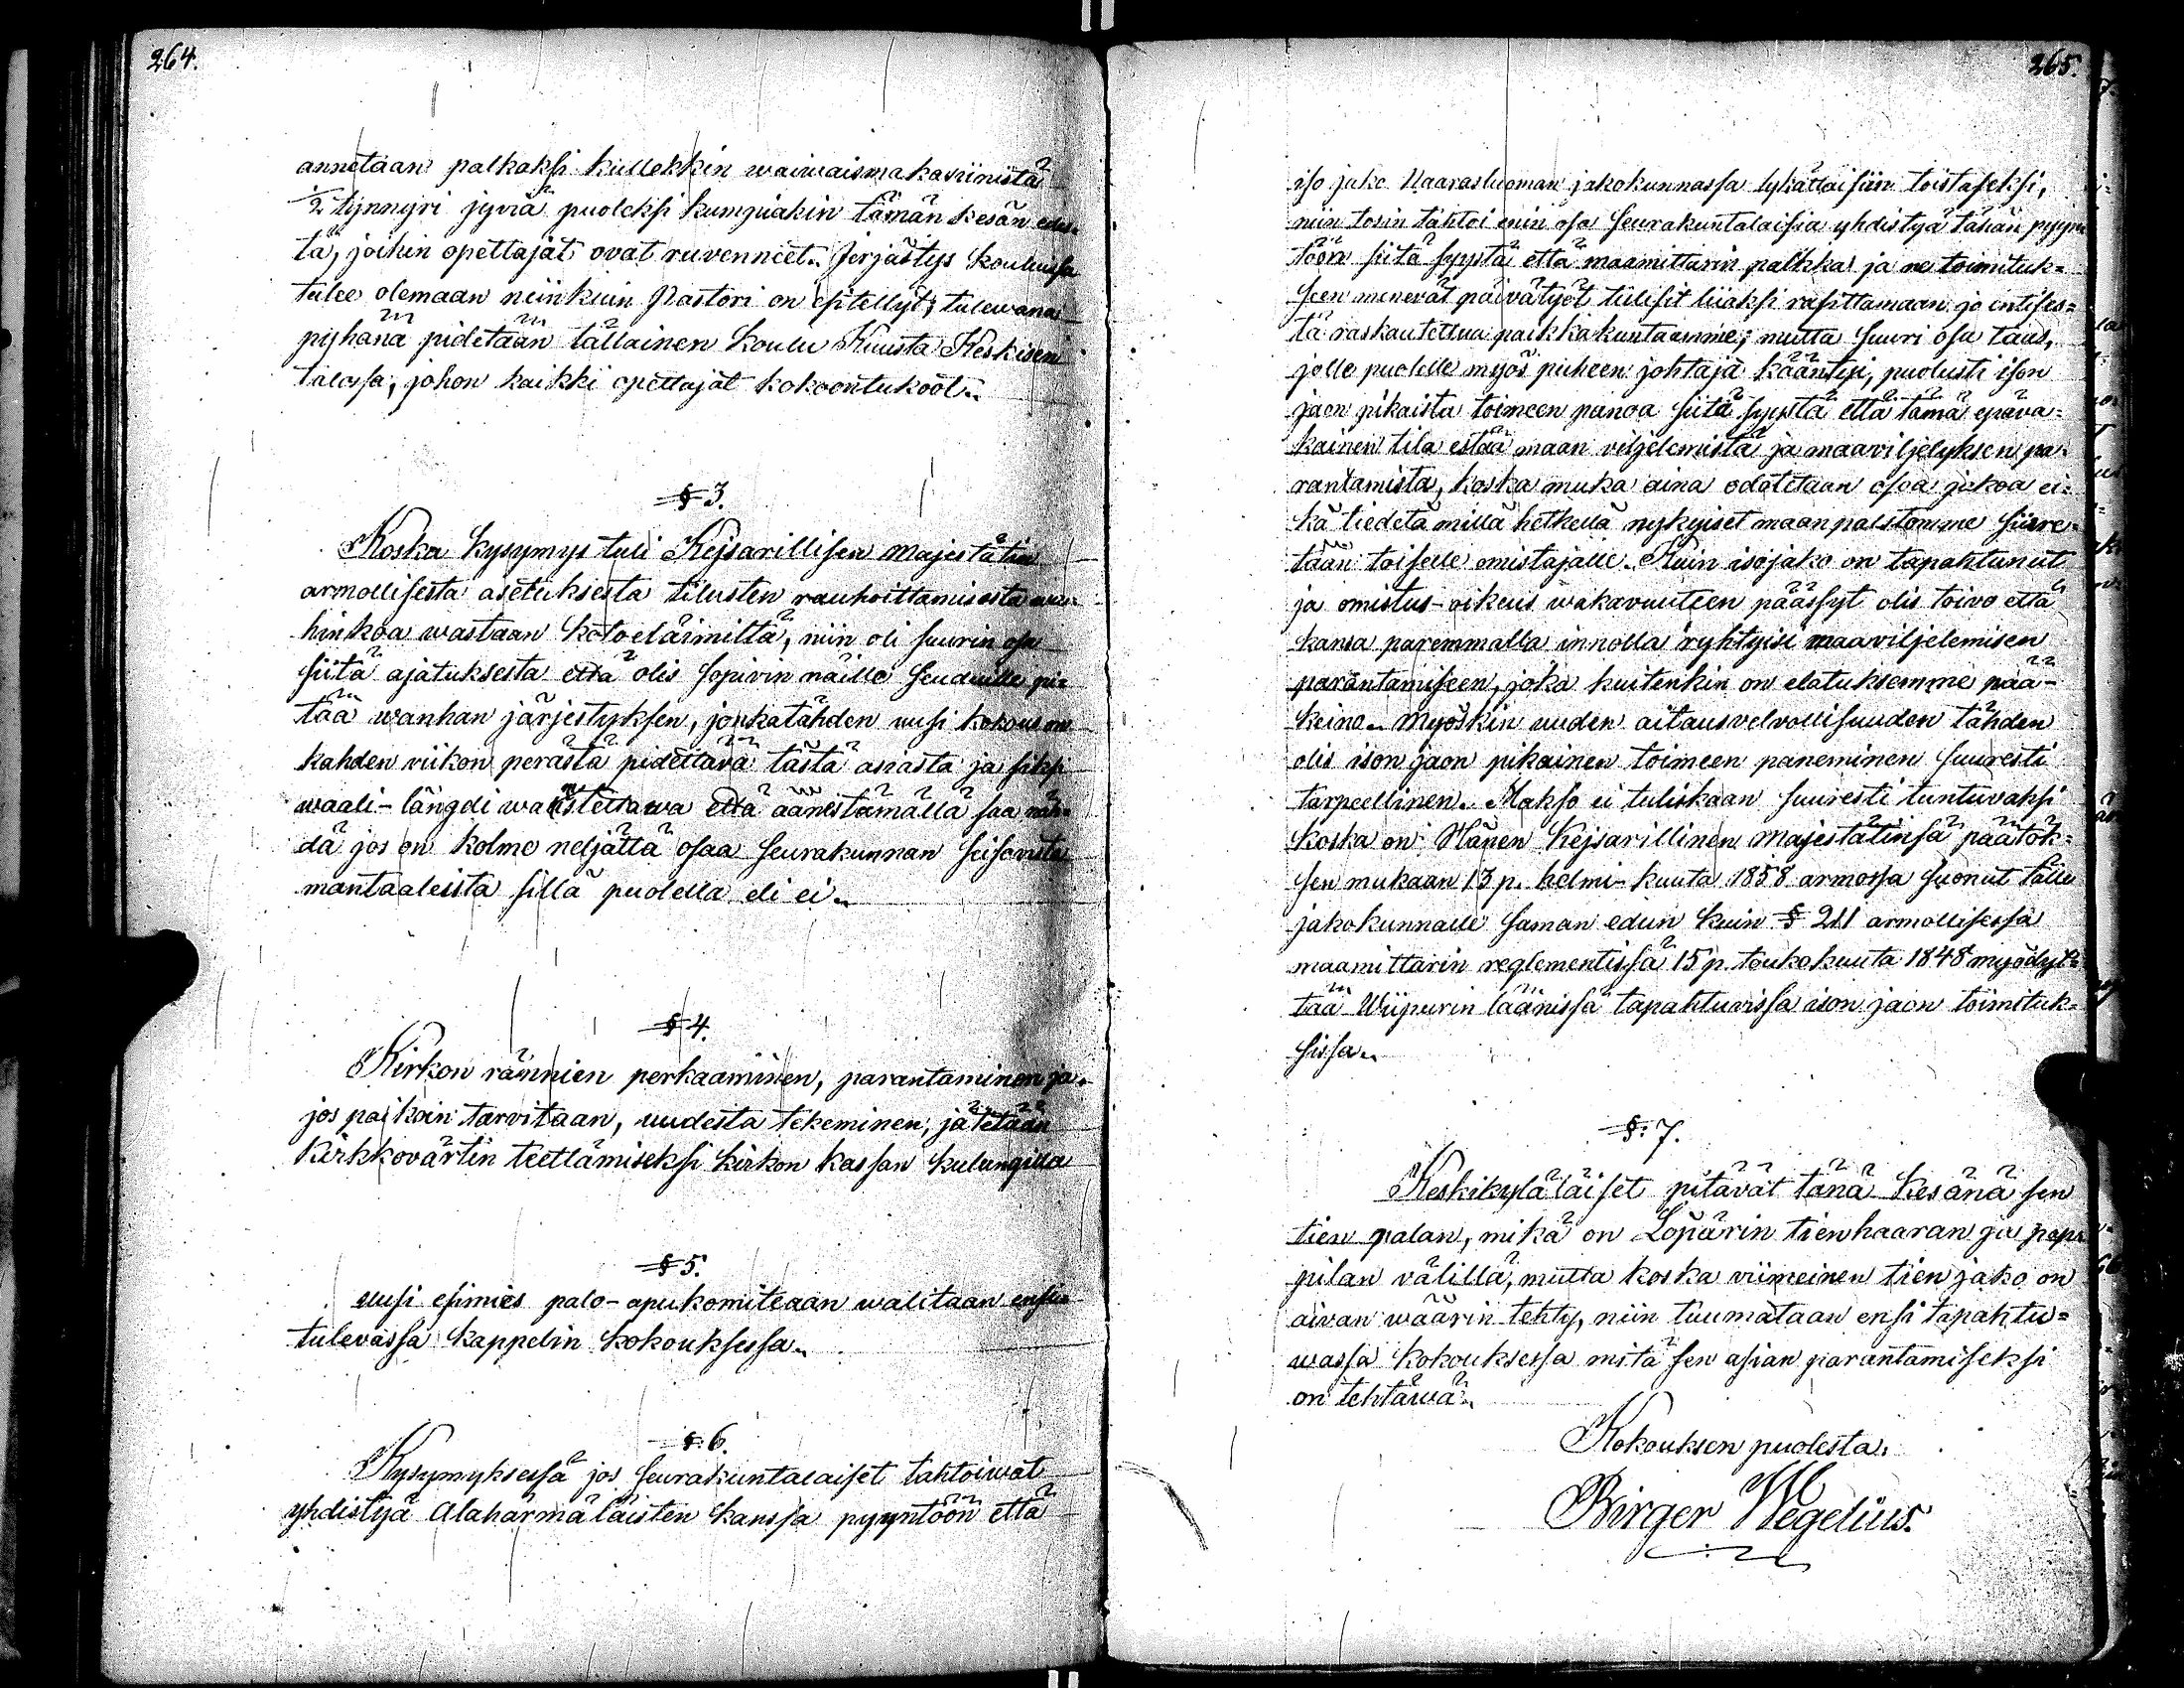 264.
annetaan palkaksi kullekkin waiwaismakasiinista
1/2 tynnyri jyviä puoleksi kumpiakin tämän kesän edes-
tä, joihin opettajat ovat ruvenneet. Jerjästys koulussa
tulee olemaan niinkuin Pastori on esitellyt; tulewana
pyhänä pidetään tällainen koulu Kuusta Keskisen
talossa, johon kaikki opettajat kokoontukoot.
§ 3.
Koska kysymys tuli Kejsarillisen Majestätin
armollisesta asetuksesta tilusten rauhoittamisesta wa-
hinkoa wastaan kotoeläimiltä, niin oli suurin osa
siitä ajatuksesta että olis sopivin näille seuduille pi-
tää wanhan järjestyksen, jonkatähden uusi kokous on
kahden viikon perästä pidettävä tästä asiasta ja siksi
waali-längdi walmistettawa että äänistämällä saa näh-
dä jos on kolme neljättä osaa seurakunnan seisovista
mantaaleista sillä puolella eli ei.
§ 4.
Kirkon rännien perkaaminen, parantaminen ja
jos paikoin tarvitaan, uudesta tekeminen, jätetään
Kirkkovärtin teettämiseksi kirkon kassan kulungilla
§ 5.
uusi esimies palo-apukomiteaan walitaan ensi-
tulevassa kappelin kokouksessa.
§ 6.
Kysymyksessä jos seurakuntalaiset tahtoiwat
yhdistyä Alahärmäläisten kanssa pyyntöön että
265.
iso jako Naarasluoman jakokunnassa lykättäisiin toistaseksi,
niin tosin tahtoi enin osa seurakuntalaisia yhdistyä tähän pyyn
töön siitä syystä että maamittarin palkka ja ne toimituk-
seen menevät päivätyöt tulisit liiaksi rasittamaan jo entises-
tä raskautettua paikkakuntaamme; mutta suuri osa taas,
jolle puolelle myös puheen johtaja kääntyi, puolusti ison
jaon pikaista toimeen panoa siitä syystä että tämä epäva-
kainen tila estää maan viljelemistä ja maaviljelyksen pa-
rantamista, koska muka aina odotetaan osoa jakoa ei-
kä tiedetä millä hetkellä nykyiset maanpalstamme siirre-
tään toiselle omistajalle. Kuin isojako on tapahtunut
ja omistus-oikeus wakavuuteen päässyt olis toivo että
kansa paremmalla innolla ryhtyisi maaviljelemisen
parantamiseen, joka kuitenkin on elatuksemme pää-
keino. Myöskin uuden aitausvelvollisuuden tähden
olis ison jaon pikainen toimeen paneminen suuresti
tarpeellinen. Makso ei tuliskaan suuresti tuntuvaksi
koska on Hänen Kejsarillinen Majestätinsä päätök-
sen mukaan 13 p. helmi-kuuta 1858 armossa suonut tälle
jakokunnalle saman edun kuin § 211 armollisessa
maamittarin reglementissä 15 p. toukokuuta 1848 myödyt-
tää Wiipurin läänissä tapahtuvissa ison jaon toimituk-
sissa.
§. 7.
Keskikyläläiset pitävät tänä kesänä sen
tien palan, mikä on Lopärin tienhaaran ja pap
pilan välillä, mutta koska viimeinen tien jako on
aivan väärin tehty, niin tuumataan ensi tapahtu-
wassa kokouksessa mitä sen asian parantamiseksi
on tehtäwä.
Kokouksen puolesta.
Birger Wegelius.